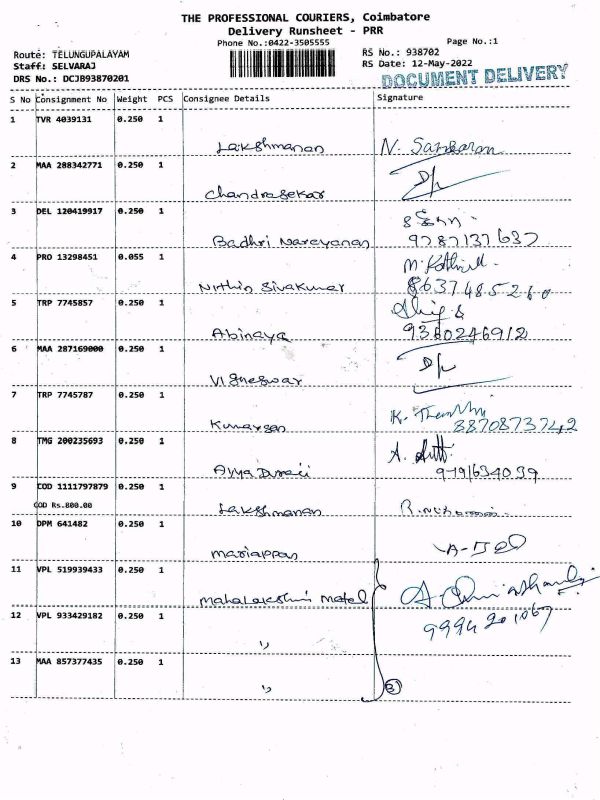 THE PROFESSIONAL COURIERS, Coimbatore
Delivery Runsheet - PRR
Phone No.:0422-3505555
Page No.:1
Route: TELUNGUPALAYAM
RS No.: 938702
Staff: SELVARAJ
RS Date: 12-May-2022
DRS No.: DCJB93870201
DOCUMENT DELIVERY
S No Consignment No Weight PCS Consignee Details Signature
1 TVR 4039131 0.250 1
Lakshmanan N.
2 MAA 288342771 0.250 1
Chandrasekar
3 DEL 120419917 0.250 1
Badhri Narayanan 9787137637
4 PRO 13298451 0.055 1
Nithin Sivakumar 8637485260
5 TRP 7745857 0.250 1
Abinaya 9360246912
6 MAA 287169000 0.250 1
Vigneswar
7 TRP 7745787 0.250 1
K.
8870873742
8 TMG 200235693 0.250 1
A.
9791634039
9 COD 1111797879 0.250 1
COD Rs.800.00 Lakshmanan R.
10 DPM 641482 0.250 1
Mariappan
11 VPL 519939433 0.250 1
Mahalakshmi Metal A.
12 VPL 933429182 0.250 1
9994201067
"
13 MAA 857377435 0.250 1
" 3